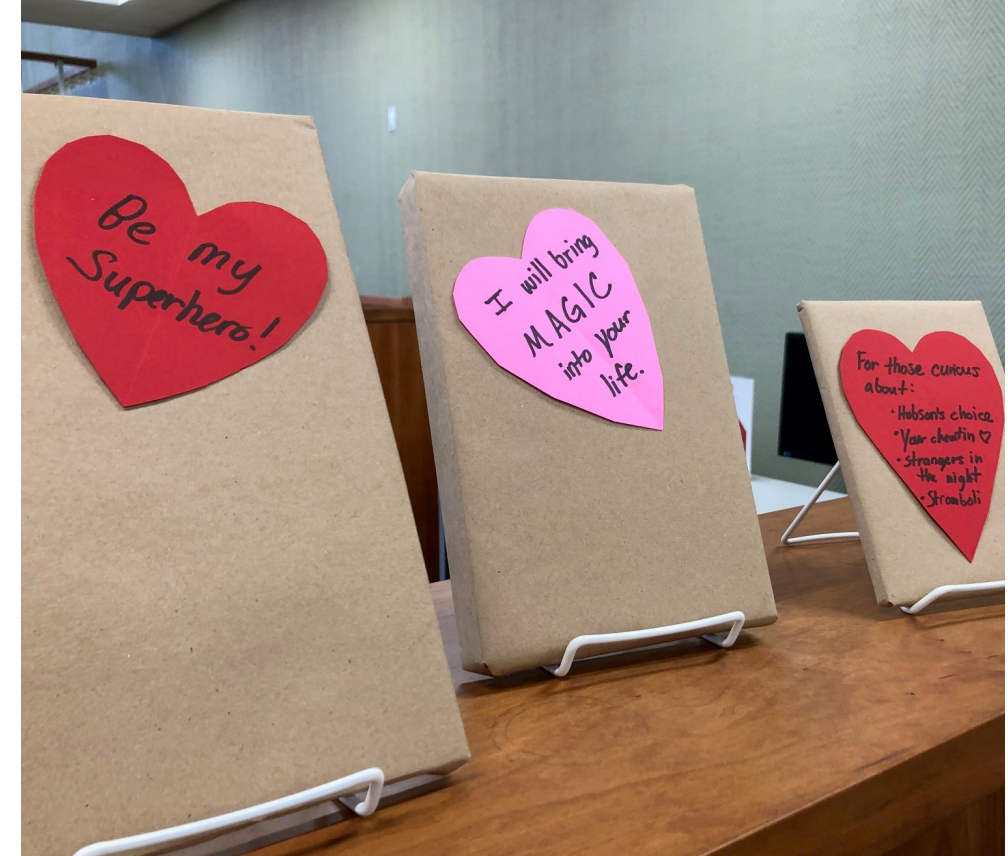 Be my
Superhero!
I will bring
MAGIC
into your
life.
For those curious
about:
• Hobson's choice
• Your cheatin ♡
• Strangers in
the night
• Stromboli